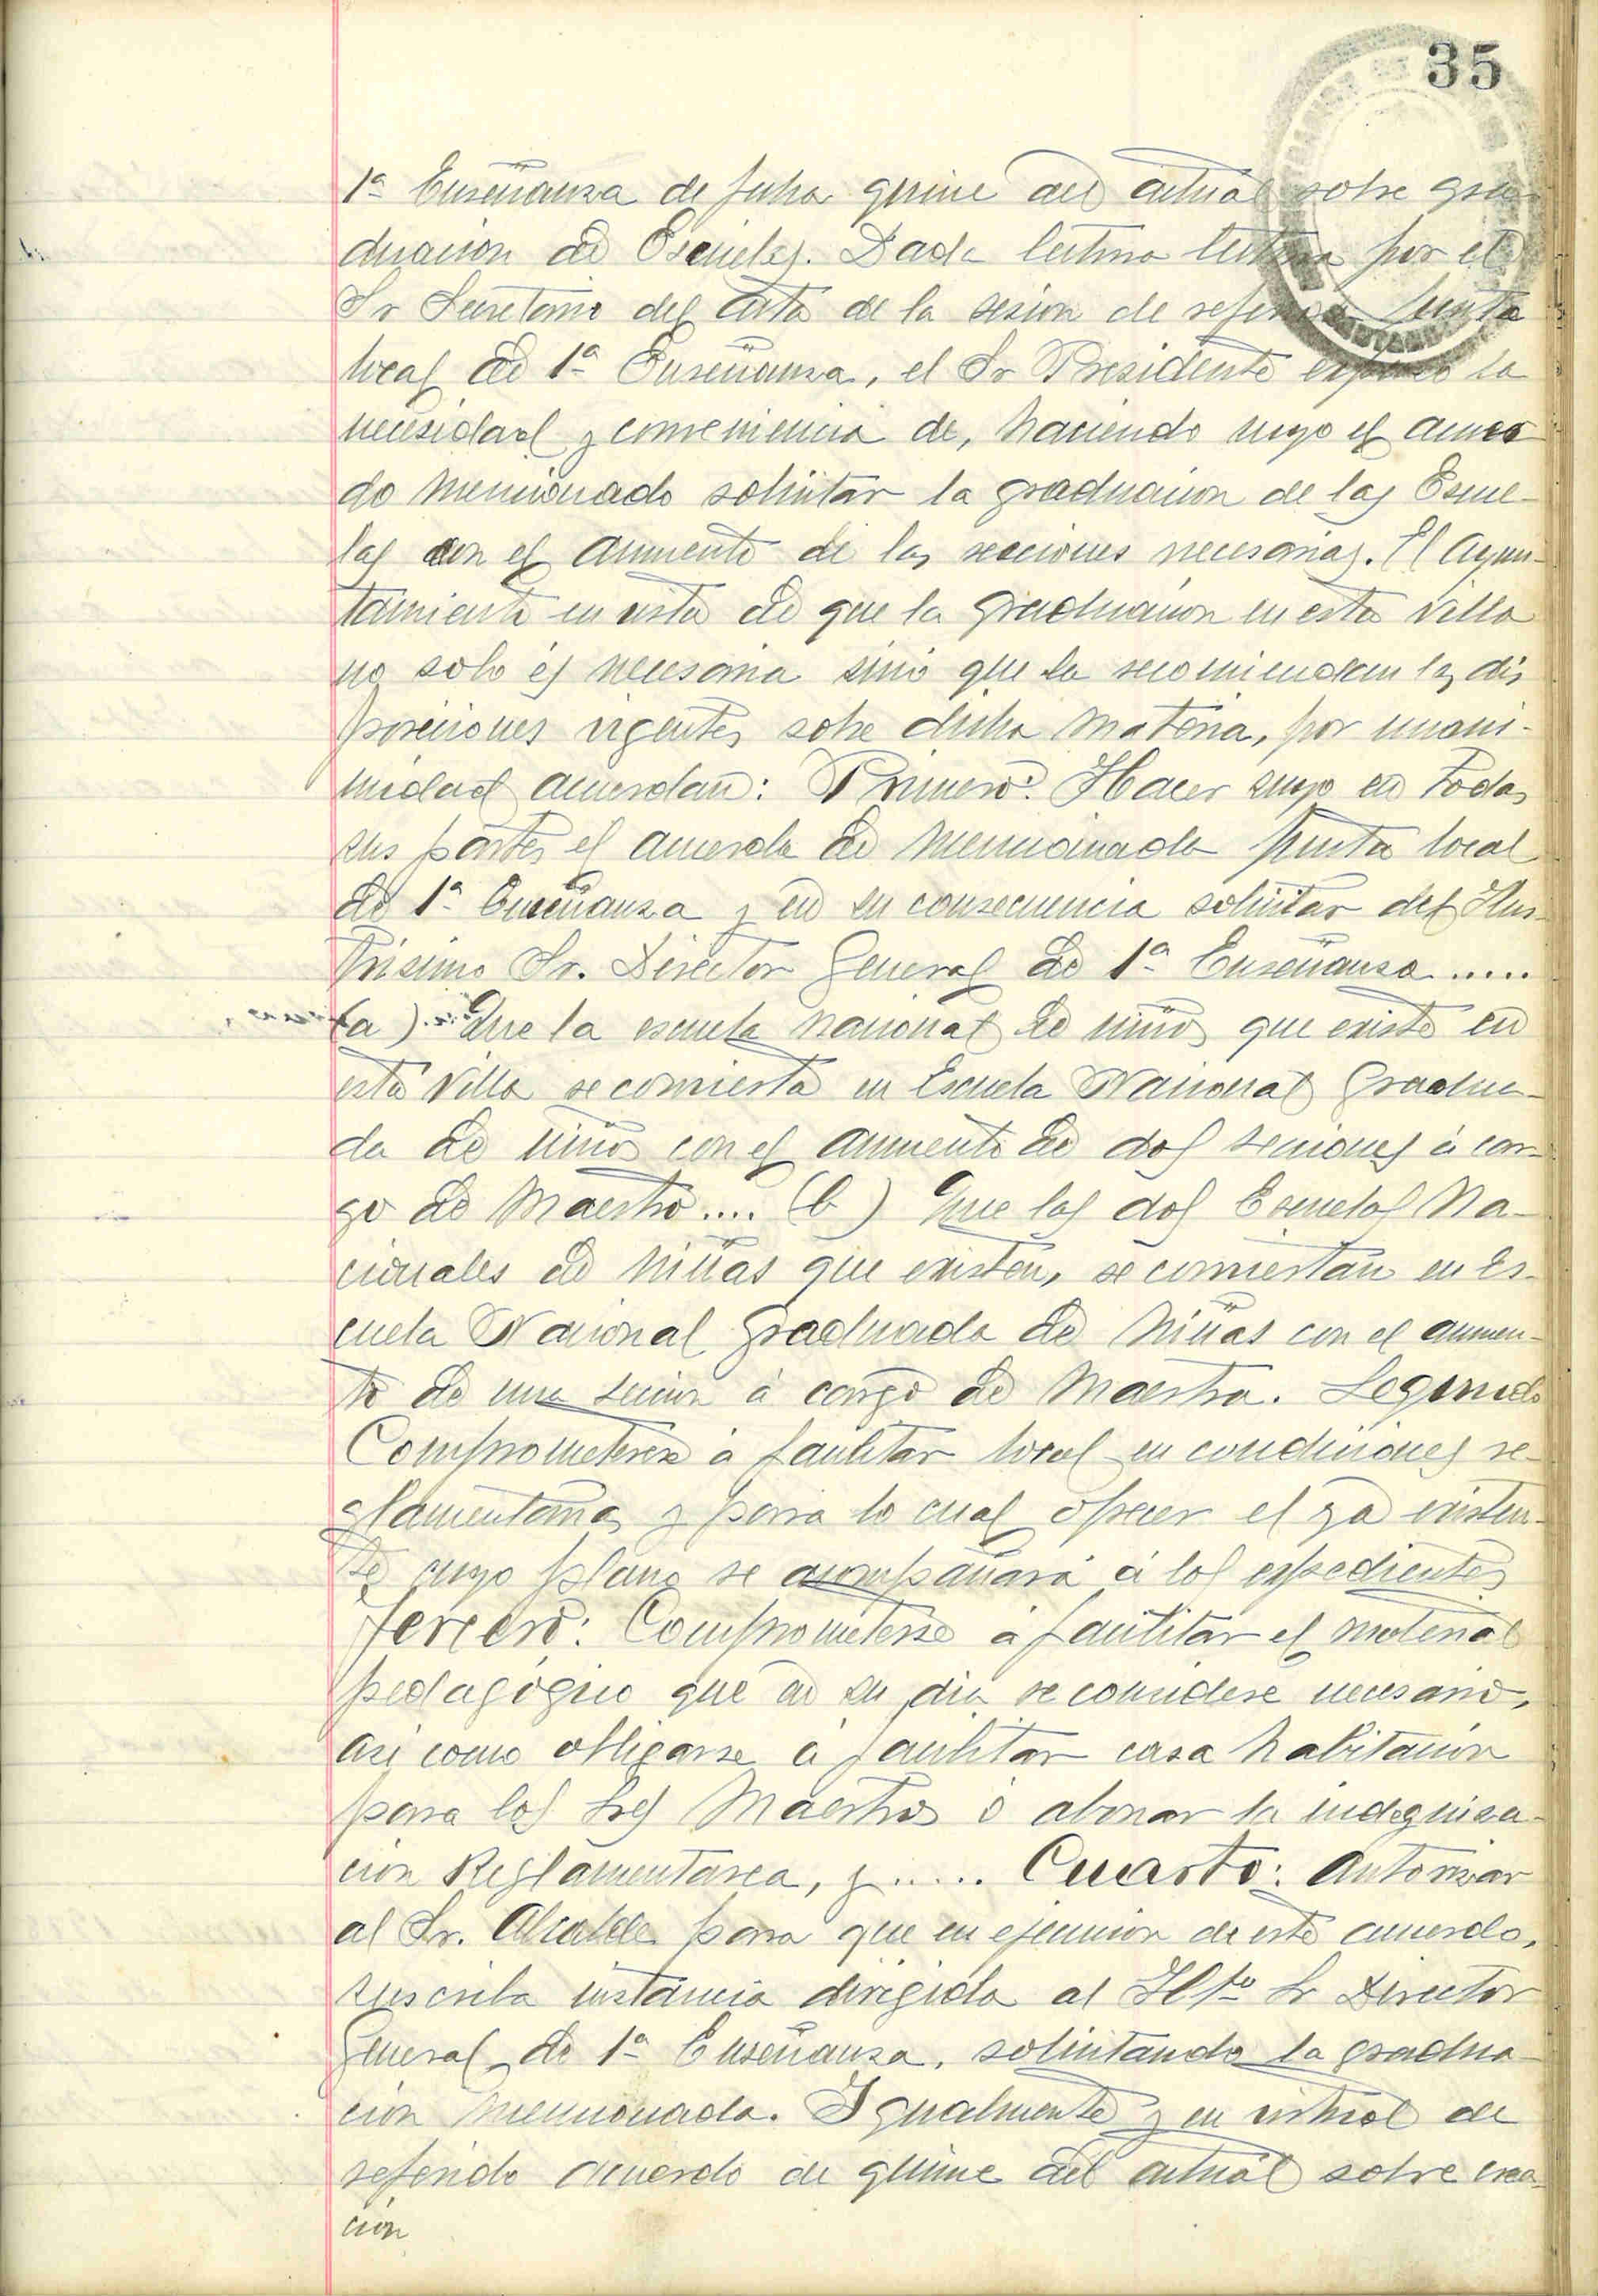 35
1ª Enseñanza de fecha quince del actual sobre gra-
duacion de Escuelas. Dada lectura por el
Sr Secretario del acta de la sesion de referida Junta
local de 1ª Enseñanza, el Sr Presidente expuso la
necesidad y conveniencia de, haciendo suyo el acuer
do mencionado solicitar la graduacion de las Escue-
las con el aumento de las secciones necesarias. El Ayun-
tamiento en vista de que la graduación en esta villa
no solo és necesaria sinó que la recomiendan las dis
posiciones vigentes sobre dicha materia, por unani-
midad acuerdan: Primero: Hacer suyo en todas
sus partes el acuerdo de mencionada Junta local
de 1ª Enseñanza y en su consecuencia solicitar del Ilus-
trisimo Sr. Director General de 1ª Enseñanza .....
(a) Que la escuela nacional de niños que existe en
esta Villa se convierta en Escuela Nacional Gradua-
da de niños con el aumento de dos secciones á car-
go de Maestro .... (b) Que las dos Escuelas Na-
cionales de niñas que existen, se conviertan en Es-
cuela Nacional Graduada de Niñas con el aumen-
to de una sección á cargo de Maestra. Segundo
Comprometerse á facilitar local en condiciones re-
glamentarias y para lo cual ofrecer el ya existen-
te cuyo plano se acompañará á los expedientes
Tercero: Comprometerse á facilitar el material
pedagógico que en su dia se considere necesario,
asi como obligarse á facilitar casa habitación
para los Sres Maestros ó abonar la indegniza-
ción Reglamentarea, y ..... Cuarto: Autorizar
al Sr. Alcalde para que en ejecucion de este acuerdo,
suscriba instancia dirigida al Iltº Sr Director
General de 1ª Enseñanza, solicitando la gradua-
ción mencionada. Igualmente y en virtud de
referido acuerdo de quince del actual sobre crea-
ción